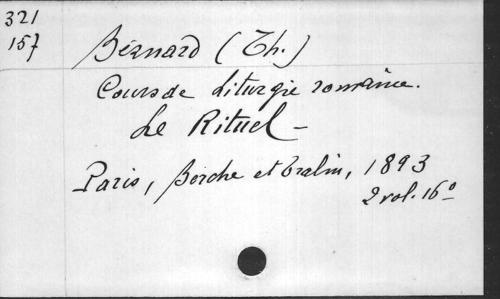 321
157
Bernard (Th.)
Cours de Liturgie romaine.
Le Rituel -
Paris, Berche et Tralin, 1893
2 vol. 16°